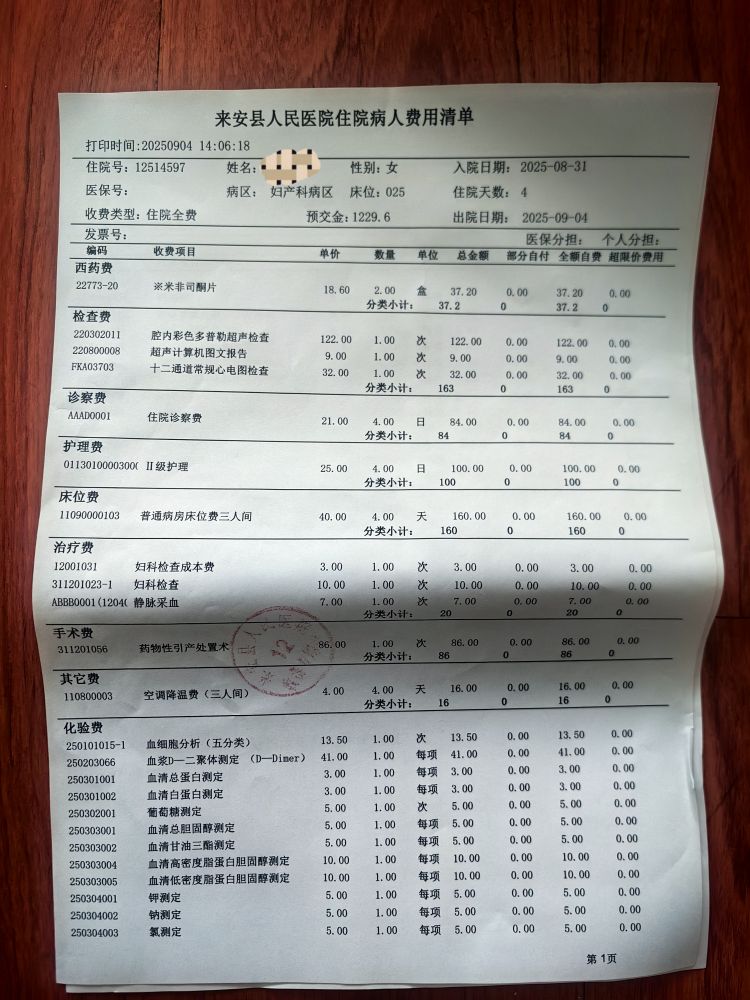 来安县人民医院住院病人费用清单
打印时间:20250904 14:06:18
住院号: 12514597 姓名: 性别: 女 入院日期: 2025-08-31
医保号: 病区: 妇产科病区 床位: 025 住院天数: 4
收费类型: 住院全费 预交金: 1229.6 出院日期: 2025-09-04
发票号: 医保分担: 个人分担:
编码 收费项目 单价 数量 单位 总金额 部分自付 全额自费 超限价费用
西药费
22773-20 ※米非司酮片 18.60 2.00 盒 37.20 0.00 37.20 0.00
分类小计: 37.2 0 37.2 0
检查费
220302011 腔内彩色多普勒超声检查 122.00 1.00 次 122.00 0.00 122.00 0.00
220800008 超声计算机图文报告 9.00 1.00 次 9.00 0.00 9.00 0.00
FKA03703 十二通道常规心电图检查 32.00 1.00 次 32.00 0.00 32.00 0.00
分类小计: 163 0 163 0
诊察费
AAAD0001 住院诊察费 21.00 4.00 日 84.00 0.00 84.00 0.00
分类小计: 84 0 84 0
护理费
0113010000300( Ⅱ级护理 25.00 4.00 日 100.00 0.00 100.00 0.00
分类小计: 100 0 100 0
床位费
11090000103 普通病房床位费三人间 40.00 4.00 天 160.00 0.00 160.00 0.00
分类小计: 160 0 160 0
治疗费
12001031 妇科检查成本费 3.00 1.00 次 3.00 0.00 3.00 0.00
311201023-1 妇科检查 10.00 1.00 次 10.00 0.00 10.00 0.00
ABBB0001(1204( 静脉采血 7.00 1.00 次 7.00 0.00 7.00 0.00
分类小计: 20 0 20 0
手术费
311201056 药物性引产处置术 86.00 1.00 次 86.00 0.00 86.00 0.00
分类小计: 86 0 86 0
其它费
110800003 空调降温费（三人间） 4.00 4.00 天 16.00 0.00 16.00 0.00
分类小计: 16 0 16 0
化验费
250101015-1 血细胞分析（五分类） 13.50 1.00 次 13.50 0.00 13.50 0.00
250203066 血浆D—二聚体测定 （D—Dimer） 41.00 1.00 每项 41.00 0.00 41.00 0.00
250301001 血清总蛋白测定 3.00 1.00 每项 3.00 0.00 3.00 0.00
250301002 血清白蛋白测定 3.00 1.00 每项 3.00 0.00 3.00 0.00
250302001 葡萄糖测定 5.00 1.00 次 5.00 0.00 5.00 0.00
250303001 血清总胆固醇测定 5.00 1.00 每项 5.00 0.00 5.00 0.00
250303002 血清甘油三酯测定 5.00 1.00 每项 5.00 0.00 5.00 0.00
250303004 血清高密度脂蛋白胆固醇测定 10.00 1.00 每项 10.00 0.00 10.00 0.00
250303005 血清低密度脂蛋白胆固醇测定 10.00 1.00 每项 10.00 0.00 10.00 0.00
250304001 钾测定 5.00 1.00 每项 5.00 0.00 5.00 0.00
250304002 钠测定 5.00 1.00 每项 5.00 0.00 5.00 0.00
250304003 氯测定 5.00 1.00 每项 5.00 0.00 5.00 0.00
第 1页